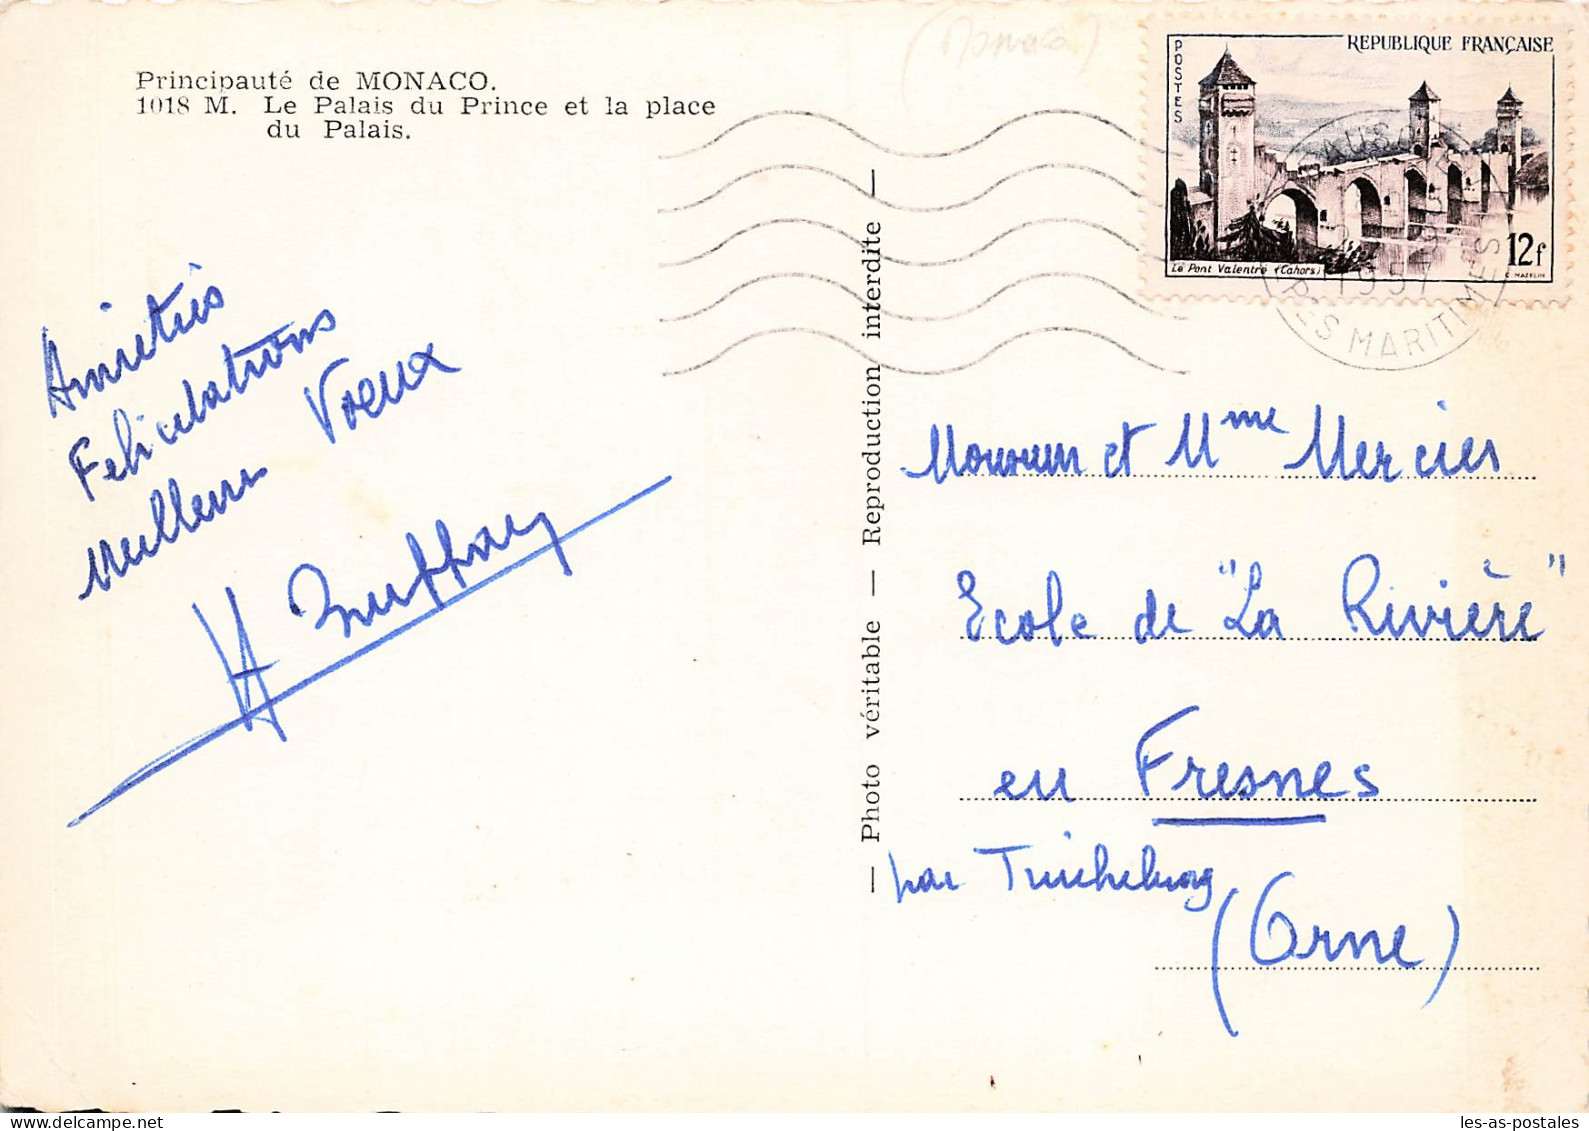 (Monaco)
Principauté de MONACO.
1018 M. Le Palais du Prince et la place
du Palais.
POSTES
REPUBLIQUE FRANÇAISE
Le Pont Valentré (Cahors)
12f
C. MAZELIN
1957
MARITIMES
Amitiés
Felicitations
Meilleurs Voeux
H
— Photo véritable — Reproduction interdite —
Monsieur et Mme Mercier
Ecole de "La Rivière"
en Fresnes
par Tinchebray
(Orne)
les-as-postales